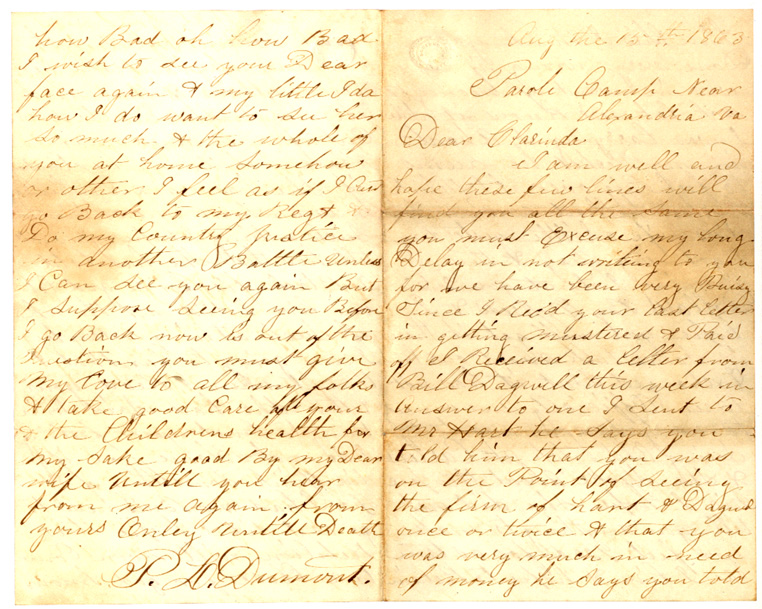 Aug the 15th 1863
Parole Camp Near
Alexandria Va
Dear Clarinda
I am well and
hope these few lines will
find you all the same
you must Excuse my long
Delay in not writing to you
for we have been very Buisy
Since I Recd your Last letter
in getting musterd & Paid
of I Received a letter from
Bill Dagwell this week in
answer to one I sent to
Mr Hart he says you
told him that you was
on the Point of seeing
the firm of hart & Dagwl
once or twice & that you
was very much in need
of money he says you told
how Bad oh how Bad
I wish to see your Dear
face again & my little Ida
how I do want to see her
so much & the whole of
you at home somehow
or other I feel as if I Cant
go Back to my Regt &
Do my Country justice
in another Battle unless
I Can see you again But
I suppose seeing you Before
I go Back now is out of the
Question you must give
my Love to all my folks
& take good Care of your
& the Childrens health for
my sake good By my Dear
wife untill you hear
from me again from
yours Onley untill Death
P. L. Dumont.